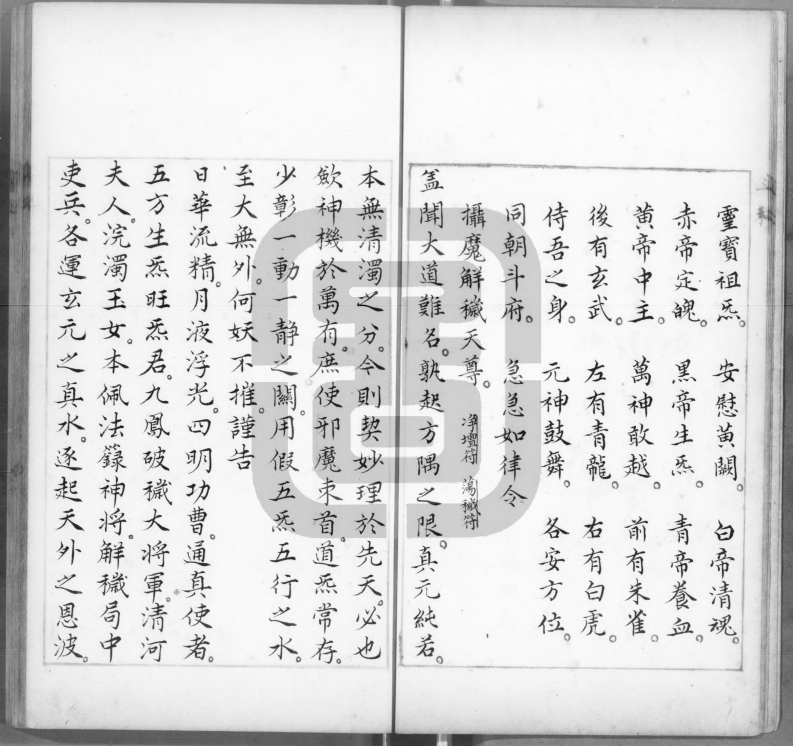 靈寶祖炁。　安慰黃闕。　白帝清魂。
赤帝定魄。　黑帝生炁。　青帝養血。
黃帝中主。　萬神敢越。　前有朱雀。
後有玄武。　左有青龍。　右有白虎。
侍吾之身。　元神鼓舞。　各安方位。
同朝斗府。　急急如律令
攝魔解穢天尊。　凈壇符　蕩穢符
盖聞大道難名。孰起方隅之限。真元純若。
本無清濁之分。今則契妙理於先天。必也
斂神機於萬有。庶使邪魔束首。道炁常存。
少彰一動一静之關。用假五炁五行之水。
至大無外。何妖不摧。謹告
日華流精。月液浮光。四明功曹。通真使者。
五方生炁旺炁君。九鳳破穢大將軍。清河
夫人。浣濁玉女。本佩法籙神將。解穢局中
吏兵。各運玄元之真水。逐起天外之恩波。